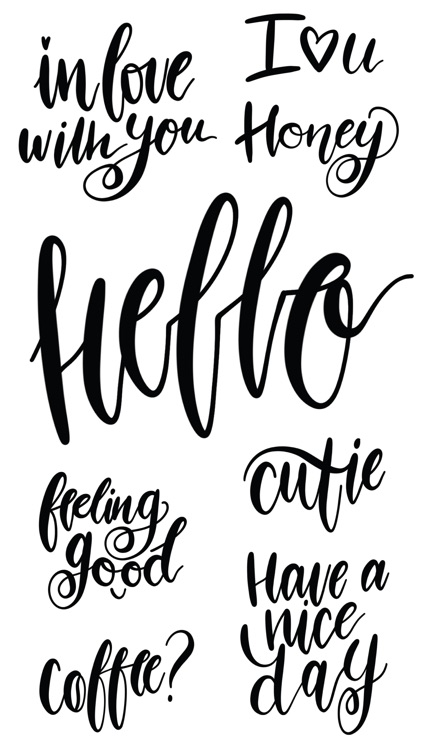 in love
with you
I ♡ u
Honey
hello
feeling
good
cutie
Have a
nice
day
coffee?